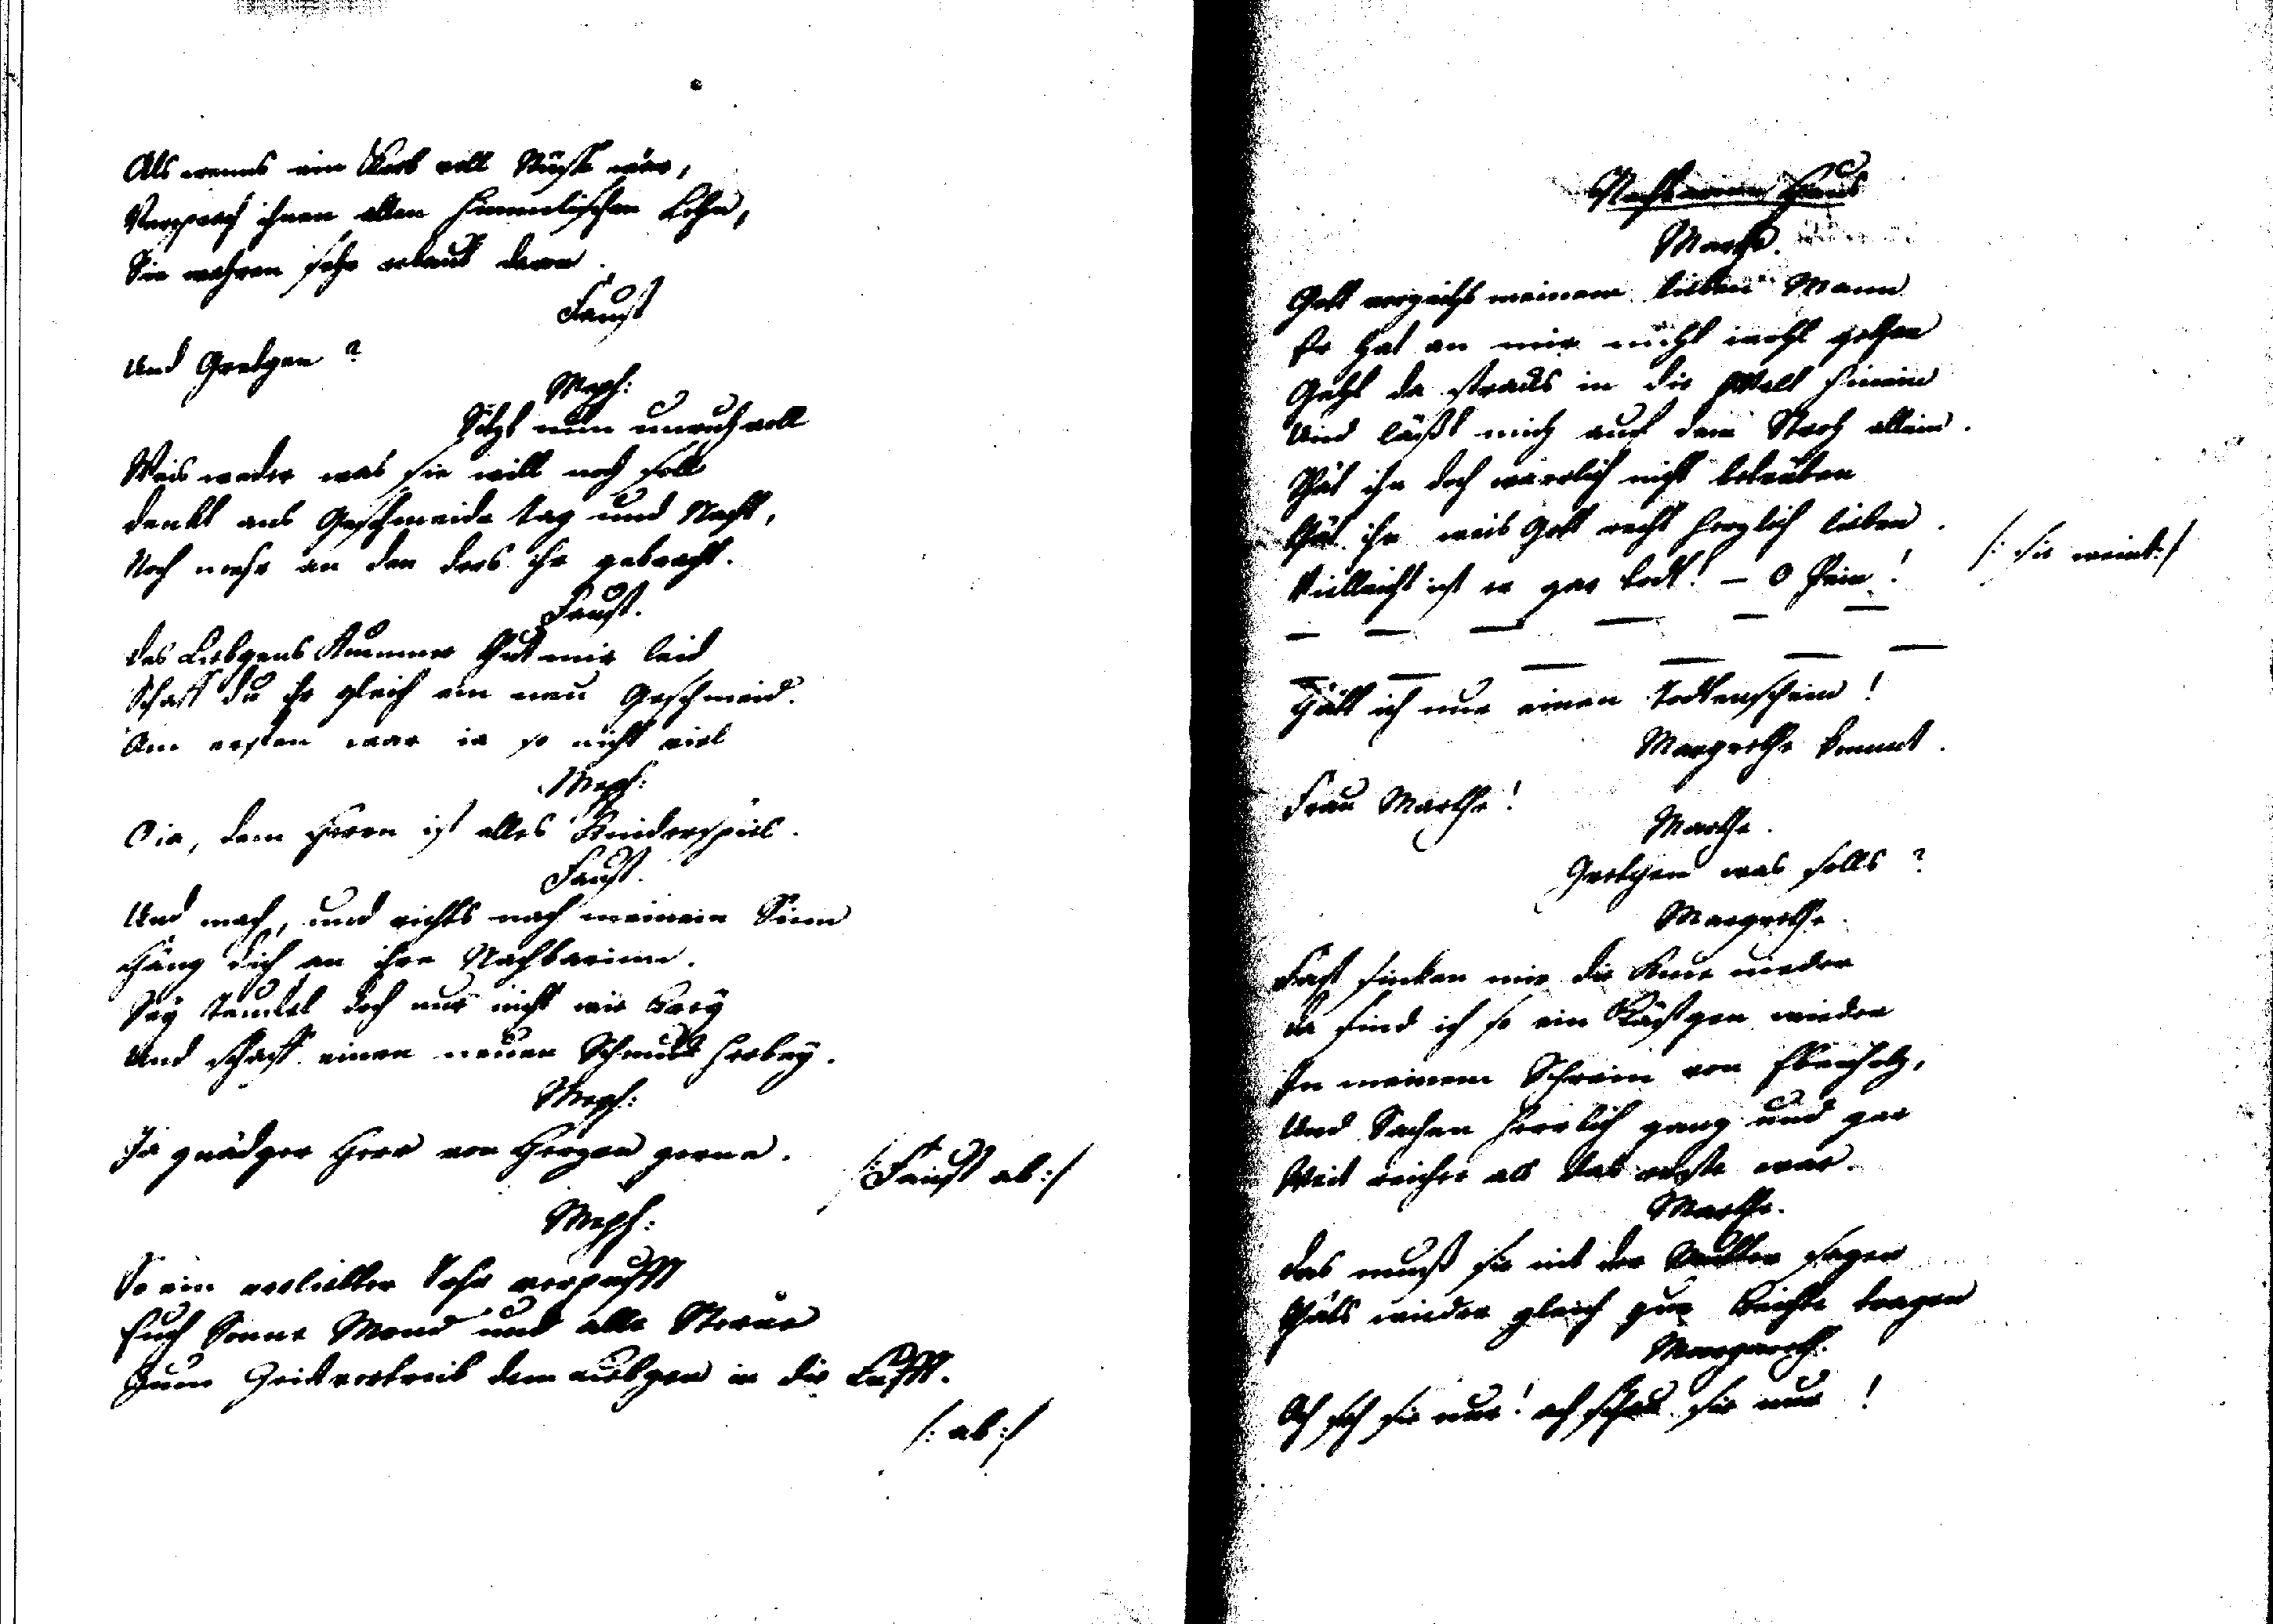 Als wenns ein Korb voll Nüsse wär,
Versprach ihnen allen himmlischen Lohn,
Sie wahren sehr erbaut davon.
Faust
Und Gretgen?
Meph:
Sitzt nun unruhvoll
Weis weder was sie will noch soll
denckt ans Geschmeide tag und Nacht,
Noch mehr an den ders ihr gebracht.
Faust.
des Liebgens Kummer thut mir leid
Schaff du ihr gleich ein neu Geschmeid.
Am ersten war ia so nicht viel
Meph:
O ia, dem Herrn ist alles Kinderspiel.
Faust.
Und mach, und richts nach meinem Sinn
Häng dich an ihre Nachbarinn.
Sey Teufel doch nur nicht wie Brey
Und schaff einen neuen Schmuck herbey.
Meph:
Ja gnädger Herr von Herzen gerne.
/:Faust ab:/
Meph:
So ein verliebter Tohr verpufft
Euch Sonne Mond und alle Sterne
Zum Zeitvertreib dem Liebgen in die Lufft.
/: ab :/
Nachbaarinn Haus
Marthe.
Gott verzeihs meinem lieben Mann
Er hat an mir nicht wohl gethan
Geht da stracks in die Welt hinein
Und läßt mich auf dem Stroh allein.
Thät ihn doch warrlich nicht betrüben
Thät ihn weis Gott recht herzlich lieben.
/: sie weint:/
Vielleicht ist er gar todt! — O Pein!
— — — — — —
— — — — — —
Hätt ich nur einen Todtenschein!
Margrethe kommt.
Frau Marthe!
Marthe.
Gretgen was solls?
Margrethe.
Fast sincken mir die Knie nieder
da find ich so ein Kästgen wieder
In meinem Schrein von Ebenholz,
Und Sachen herrlich ganz und gar
Weit reicher als das erste war.
Marthe.
das muß sie nit der Mutter sagen
Thäts wieder gleich zur Beichte tragen
Margareth.
Ach seh sie nur! ach schau sie nur!